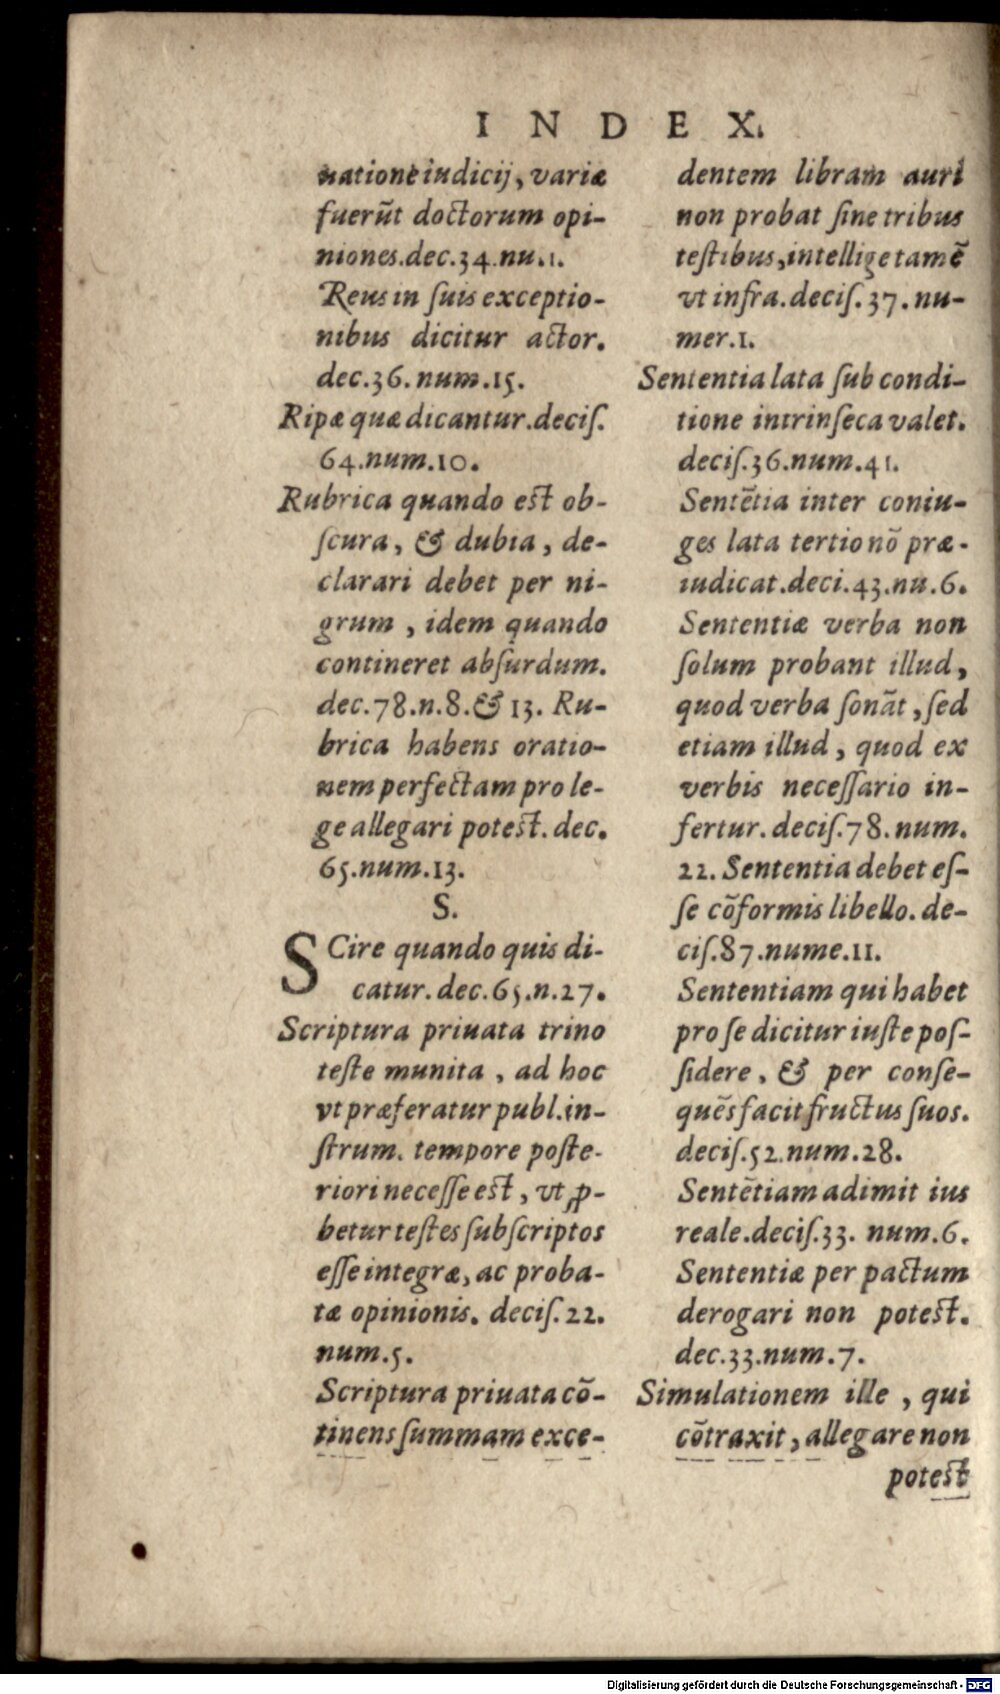 INDEX.
natione iudicij, variæ
fuerūt doctorum opi-
niones. dec. 34. nu. 1.
Reus in ſuis exceptio-
nibus dicitur actor.
dec. 36. num. 15.
Ripæ quæ dicantur. deciſ.
64. num. 10.
Rubrica quando est ob-
ſcura, & dubia, de-
clarari debet per ni-
grum, idem quando
contineret abſurdum.
dec. 78. n. 8. & 13. Ru-
brica habens oratio-
nem perfectam pro le-
ge allegari potest. dec.
65. num. 13.
S.
SCire quando quis di-
catur. dec. 65. n. 27.
Scriptura priuata trino
teſte munita, ad hoc
vt præferatur publ. in-
ſtrum. tempore poſte-
riori neceſſe est, vt ꝓ-
betur teſtes ſubſcriptos
eſſe integræ, ac proba-
tæ opinionis. deciſ. 22.
num. 5.
Scriptura priuata cō-
tinens ſummam exce-
dentem libram auri
non probat ſine tribus
teſtibus, intellige tamē
vt infra. deciſ. 37. nu-
mer. 1.
Sententia lata ſub condi-
tione intrinſeca valet.
deciſ. 36. num. 41.
Sentētia inter coniu-
ges lata tertio nō præ-
iudicat. deci. 43. nu. 6.
Sententiæ verba non
ſolum probant illud,
quod verba ſonāt, ſed
etiam illud, quod ex
verbis neceſſario in-
fertur. deciſ. 78. num.
22. Sententia debet eſ-
ſe cōformis libello. de-
ciſ. 87. nume. 11.
Sententiam qui habet
pro ſe dicitur iuſte poſ-
ſidere, & per conſe-
quēs facit fructus ſuos.
deciſ. 52. num. 28.
Sentētiam adimit ius
reale. deciſ. 33. num. 6.
Sententiæ per pactum
derogari non potest.
dec. 33. num. 7.
Simulationem ille, qui
cōtraxit, allegare non
potest
Digitalisierung gefördert durch die Deutsche Forschungsgemeinschaft - DFG